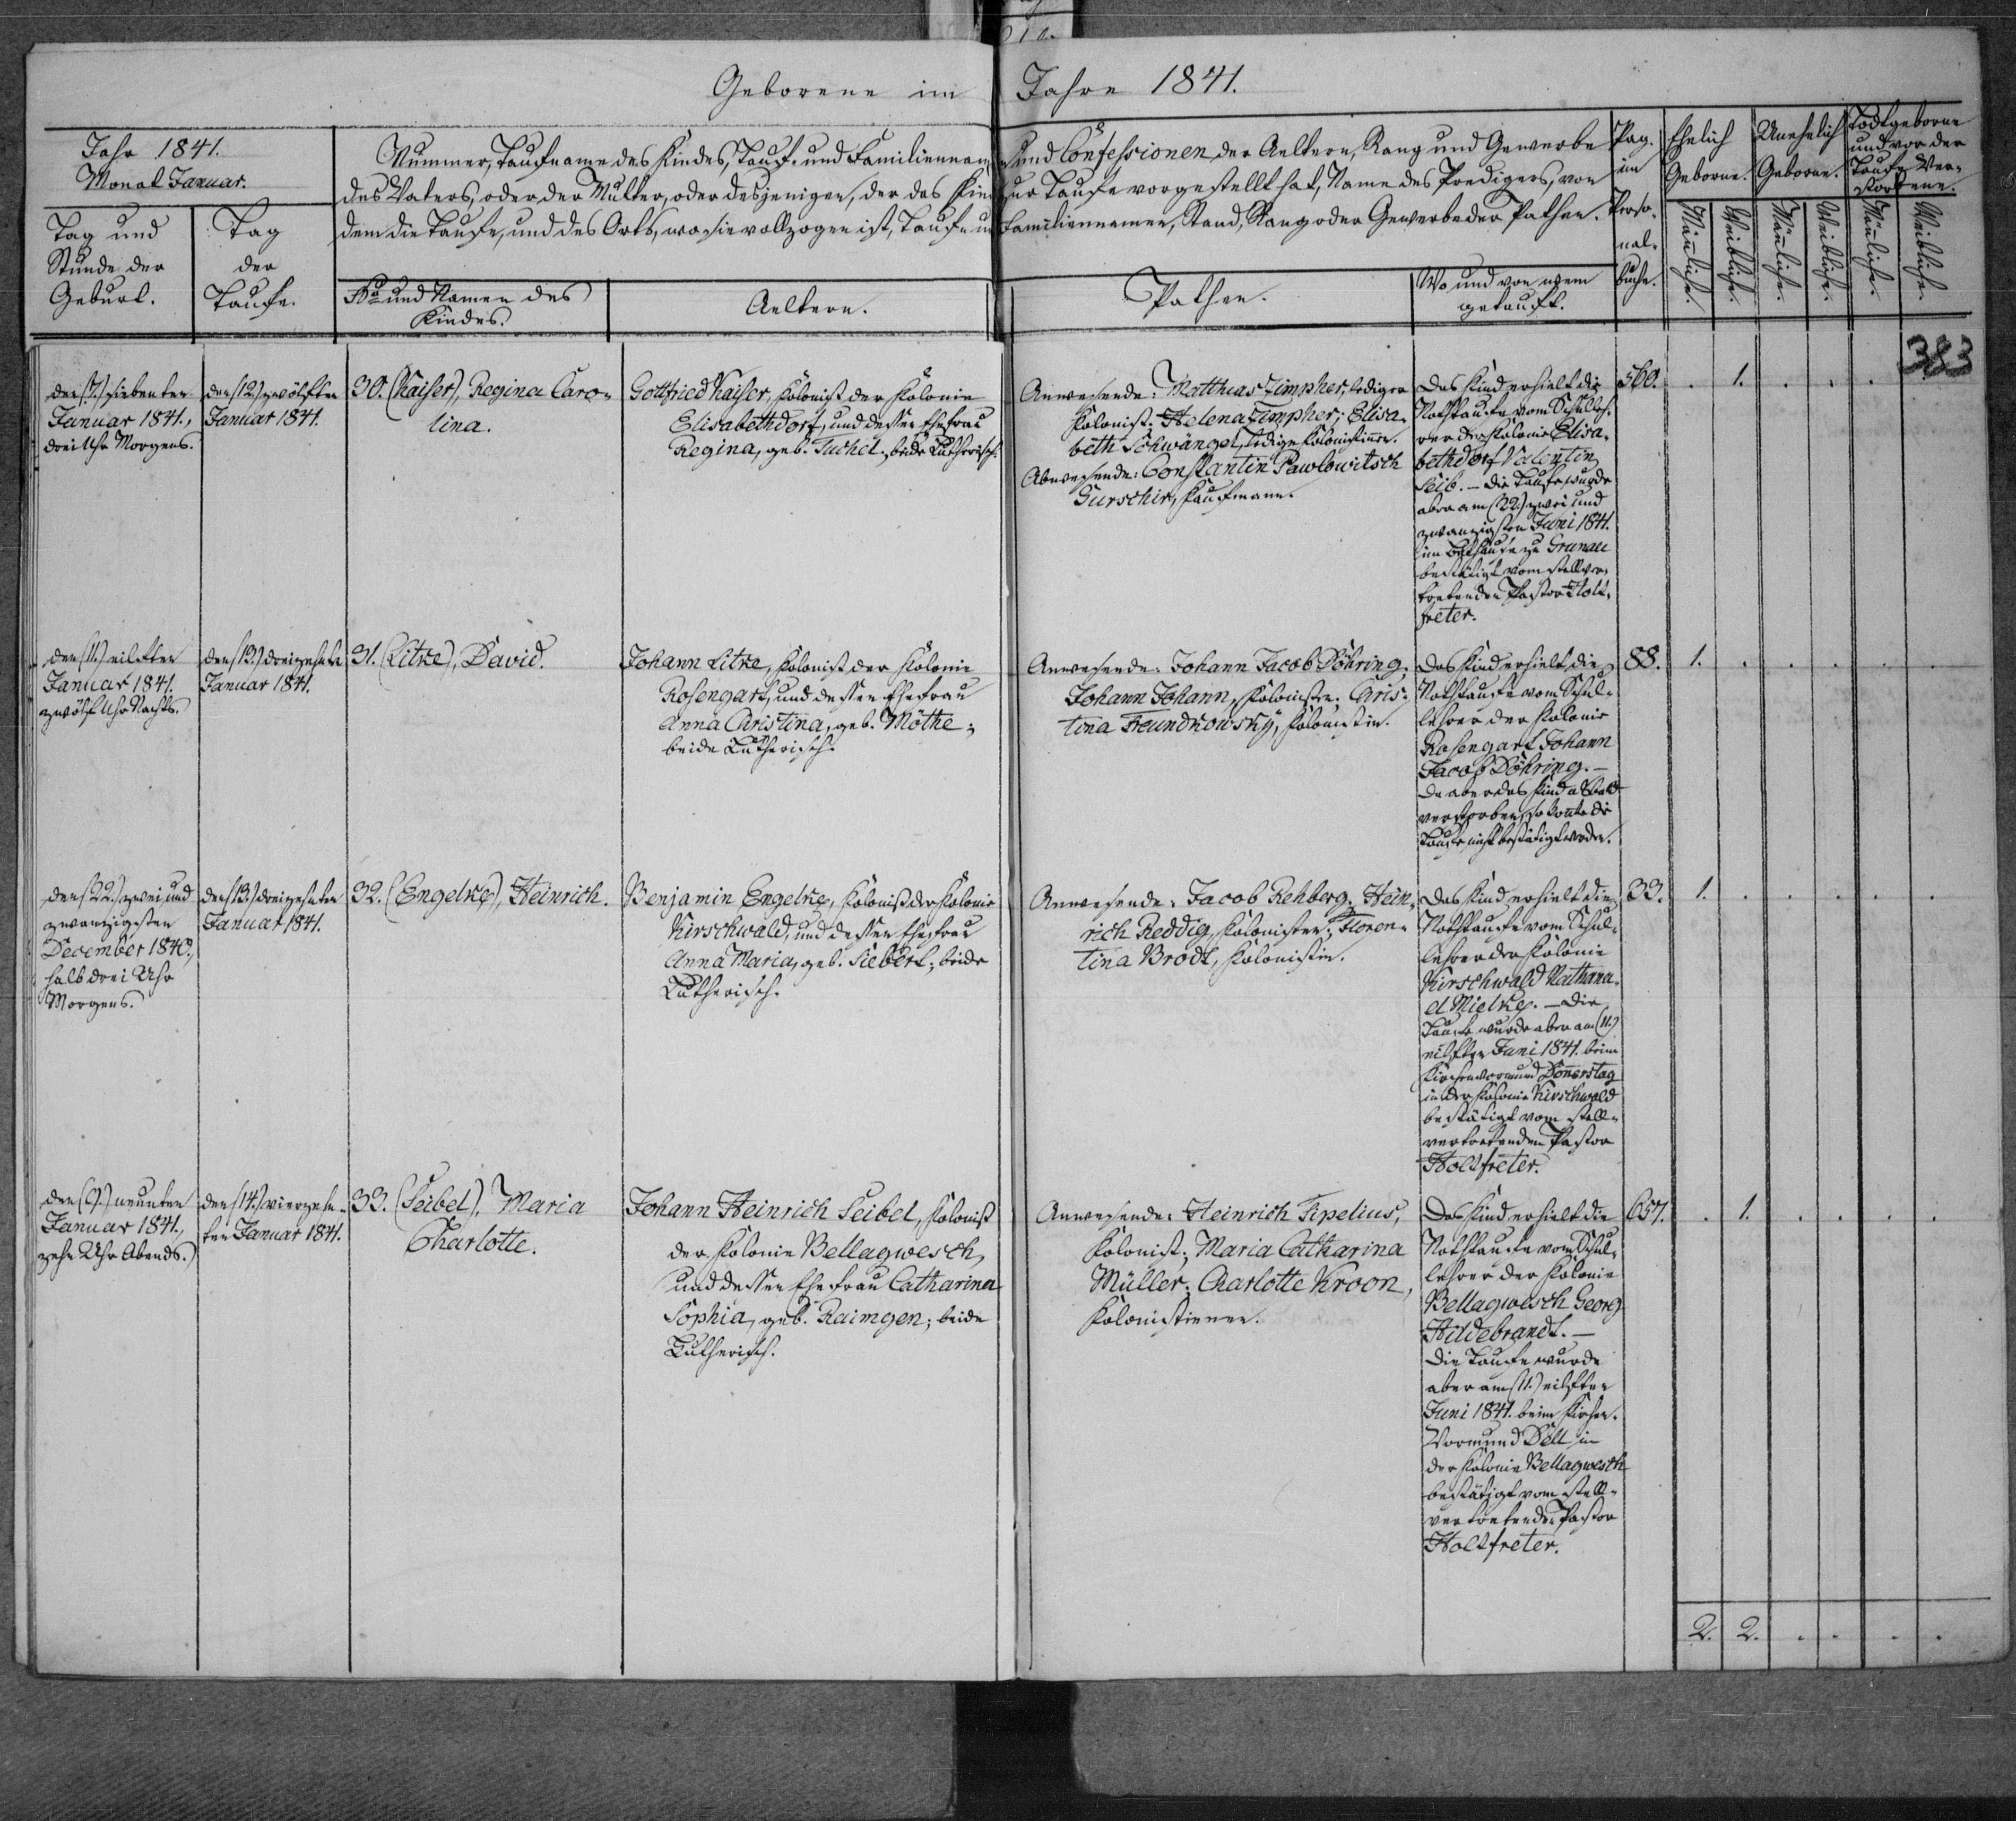 Geborene im Jahre 1841.
Jahr 1841.
Monat Januar.
Tag und
Stunde der
Geburt.
Tag
der
Taufe.
Nummer, Taufname des Kindes, Tauf- und Familienname und Confessionen der Aeltern, Rang und Gewerbe
des Vaters, oder der Mutter, oder desjenigen, der das Kind zur Taufe vorgestellt hat, Name des Predigers, von
dem die Taufe, und des Orts, wo sie vollzogen ist, Tauf- und Familiennamen, Stand, Rang oder Gewerbe der Pathen.
No und Namen des
Kindes.
Aeltern.
Pathen.
Wo und von wem
getauft.
Pag.
im
Perso-
nal-
buche.
Ehelich
Geborne.
Unehelich
Geborne.
Todtgeborne
und vor der
Taufe Ver-
storbene.
Männliche.
Weibliche.
Männliche.
Weibliche.
Männliche.
Weibliche.
383
den (7.) siebenten
Januar 1841.,
drei Uhr Morgens.
den (12.) zwölften
Januar 1841.
30. (Kaiser), Regina Caro-
lina.
Gottfried Kaiser, Kolonist der Kolonie
Elisabethdorf, und dessen Ehefrau
Regina, geb. Tuchel; beide Lutherisch.
Anwesende: Matthias Zimpher, lediger
Kolonist; Helena Zimpher; Elisa-
beth Schwängel, ledige Kolonistinnen.
Abwesende: Constantin Pawlowitsch
Gurschin, Kaufmann.
Das Kind erhielt die
Nothtaufe vom Schulleh-
rer der Kolonie Elisa-
bethdorf Valentin
Seib. – Die Taufe wurde
aber am (22.) zwei und
zwanzigsten Juni 1841.
im Bethause zu Grunau
bestätigt vom stellver-
tretenden Pastor Holt-
freter.
560. . 1. . . .
den (11.) eilften
Januar 1841.
zwölf Uhr Nachts.
den (13.) dreizehnten
Januar 1841.
31. (Litke), David.
Johann Litke, Kolonist der Kolonie
Rosengart, und dessen Ehefrau
Anna Christina, geb. Möthe;
beide Lutherisch.
Anwesende: Johann Jacob Döhring;
Johann Johann, Kolonisten; Chris-
tina Freundkowsky, Kolonistin.
Das Kind erhielt die
Nothtaufe vom Schul-
lehrer der Kolonie
Rosengart Johann
Jacob Döhring. –
Da aber das Kind alsbald
verstorben, so konnte die
Taufe nicht bestätigt werden.
88. 1. . . . . .
den (22.) zwei und
zwanzigsten
December 1840.,
halb drei Uhr
Morgens.
den (13.) dreizehnten
Januar 1841.
32. (Engelke), Heinrich.
Benjamin Engelke, Kolonist der Kolonie
Kirschwald, und dessen Ehefrau
Anna Maria, geb. Siebert; beide
Lutherisch.
Anwesende: Jacob Rehberg; Hein-
rich Reddig, Kolonisten; Floren-
tina Brodt, Kolonistin.
Das Kind erhielt die
Nothtaufe vom Schul-
lehrer der Kolonie
Kirschwald Nathana-
el Mielke. – Die
Taufe wurde aber am (11.)
eilften Juni 1841. beim
Kirchenvormund Donnerstag
in der Kolonie Kirschwald
bestätigt vom stell-
vertretenden Pastor
Holtfreter.
33. 1. . . . . .
den (9.) neunten
Januar 1841.,
zehn Uhr Abends.
den (14.) vierzehn-
ten Januar 1841.
33. (Seibel), Maria
Charlotte.
Johann Heinrich Seibel, Kolonist
der Kolonie Bellagwesch,
und dessen Ehefrau Catharina
Sophia, geb. Raimgen; beide
Lutherisch.
Anwesende: Heinrich Fipelius,
Kolonist; Maria Catharina
Müller; Charlotte Kroon,
Kolonistinnen.
Das Kind erhielt die
Nothtaufe vom Schul-
lehrer der Kolonie
Bellagwesch Georg
Hildebrandt. –
Die Taufe wurde
aber am (11.) eilften
Juni 1841. beim Kirchen-
Vormund Dell in
der Kolonie Bellagwesch
bestätigt vom stell-
vertretenden Pastor
Holtfreter.
657. . 1. . . . .
2. 2. . . . .